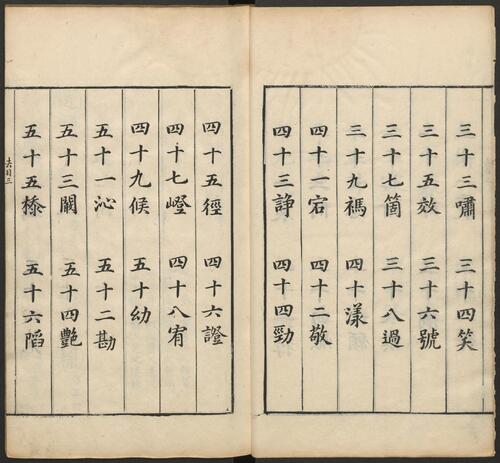 三十三嘯　三十四笑
三十五效　三十六號
三十七箇　三十八過
三十九禡　四十漾
四十一宕　四十二敬
四十三諍　四十四勁
四十五徑　四十六證
四十七嶝　四十八宥
四十九候　五十幼
五十一沁　五十二勘
五十三闞　五十四豔
五十五㮇　五十六陷
去目三